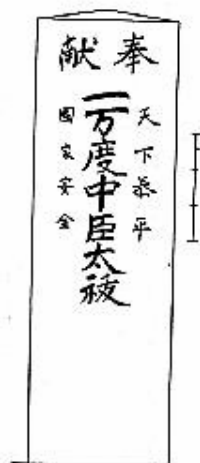 奉献
天下泰平
一万度中臣太祓
國家安全